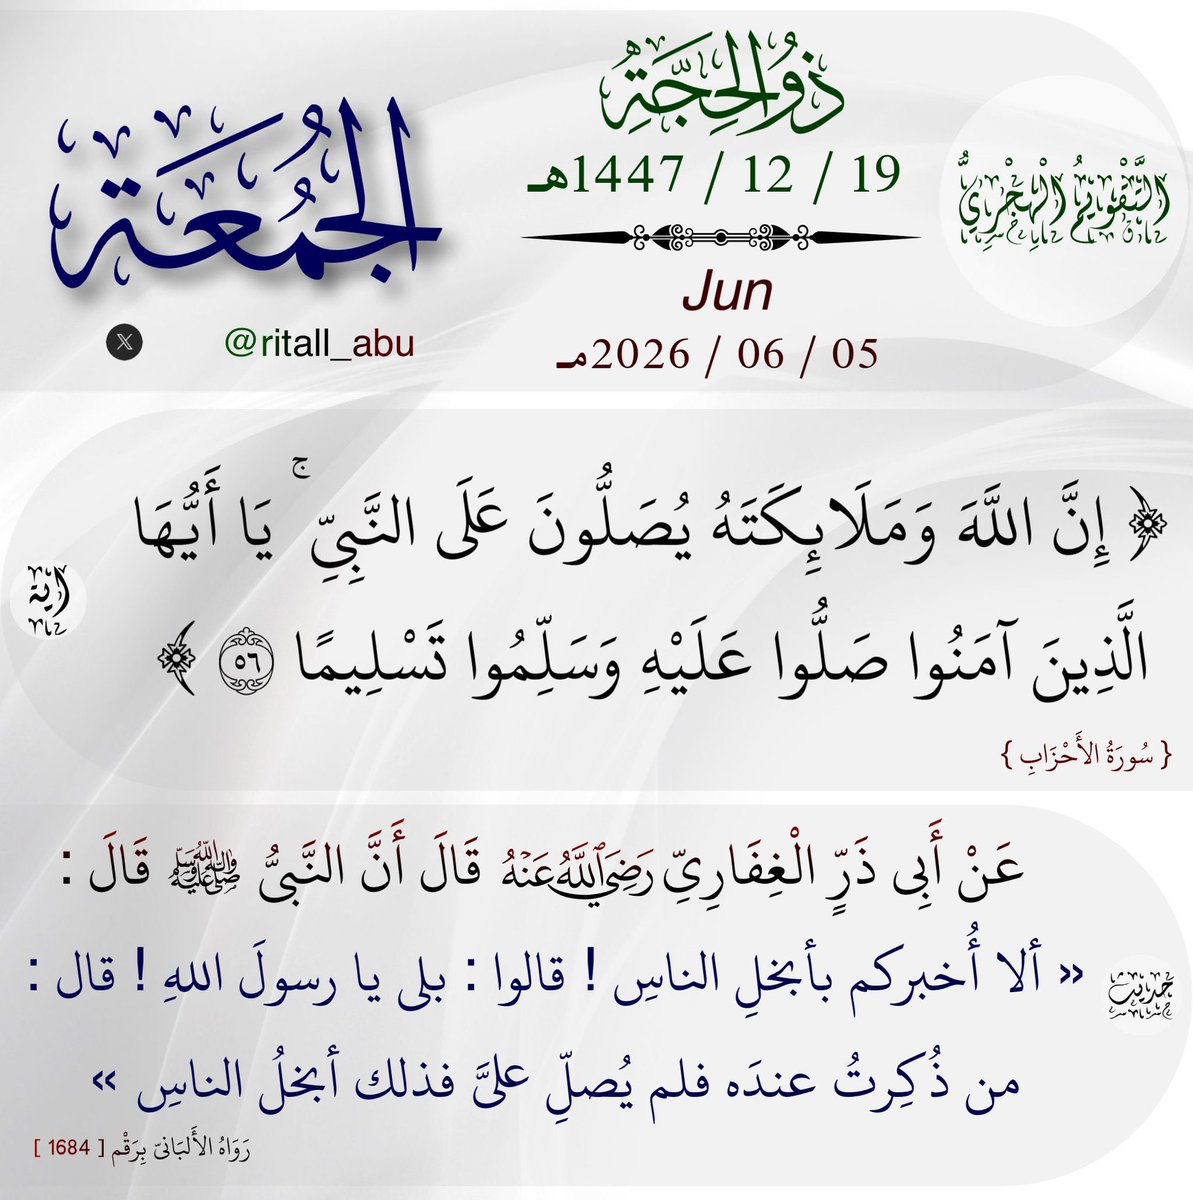 التَّقْوِيمُ الْهِجْرِيُّ
ذُو الحِجَّةِ
19 / 12 / 1447هـ
Jun
05 / 06 / 2026مـ
الجُمُعَة
@ritall_abu
آية
﴿ إِنَّ اللَّهَ وَمَلَائِكَتَهُ يُصَلُّونَ عَلَى النَّبِيِّ ۚ يَا أَيُّهَا
الَّذِينَ آمَنُوا صَلُّوا عَلَيْهِ وَسَلِّمُوا تَسْلِيمًا ٥٦ ﴾
{ سُورَةُ الأَحْزَابِ }
عَنْ أَبِي ذَرٍّ الْغِفَارِيِّ رَضِيَ اللَّهُ عَنْهُ قَالَ أَنَّ النَّبيُّ ﷺ قَالَ :
حديث
« ألا أُخبركم بأبخلِ الناسِ ! قالوا : بلى يا رسولَ اللهِ ! قال :
من ذُكِرتُ عندَه فلم يُصلِّ عليَّ فذلك أبخلُ الناسِ »
رَوَاهُ الأَلبَانيّ بِرَقْم [ 1684 ]